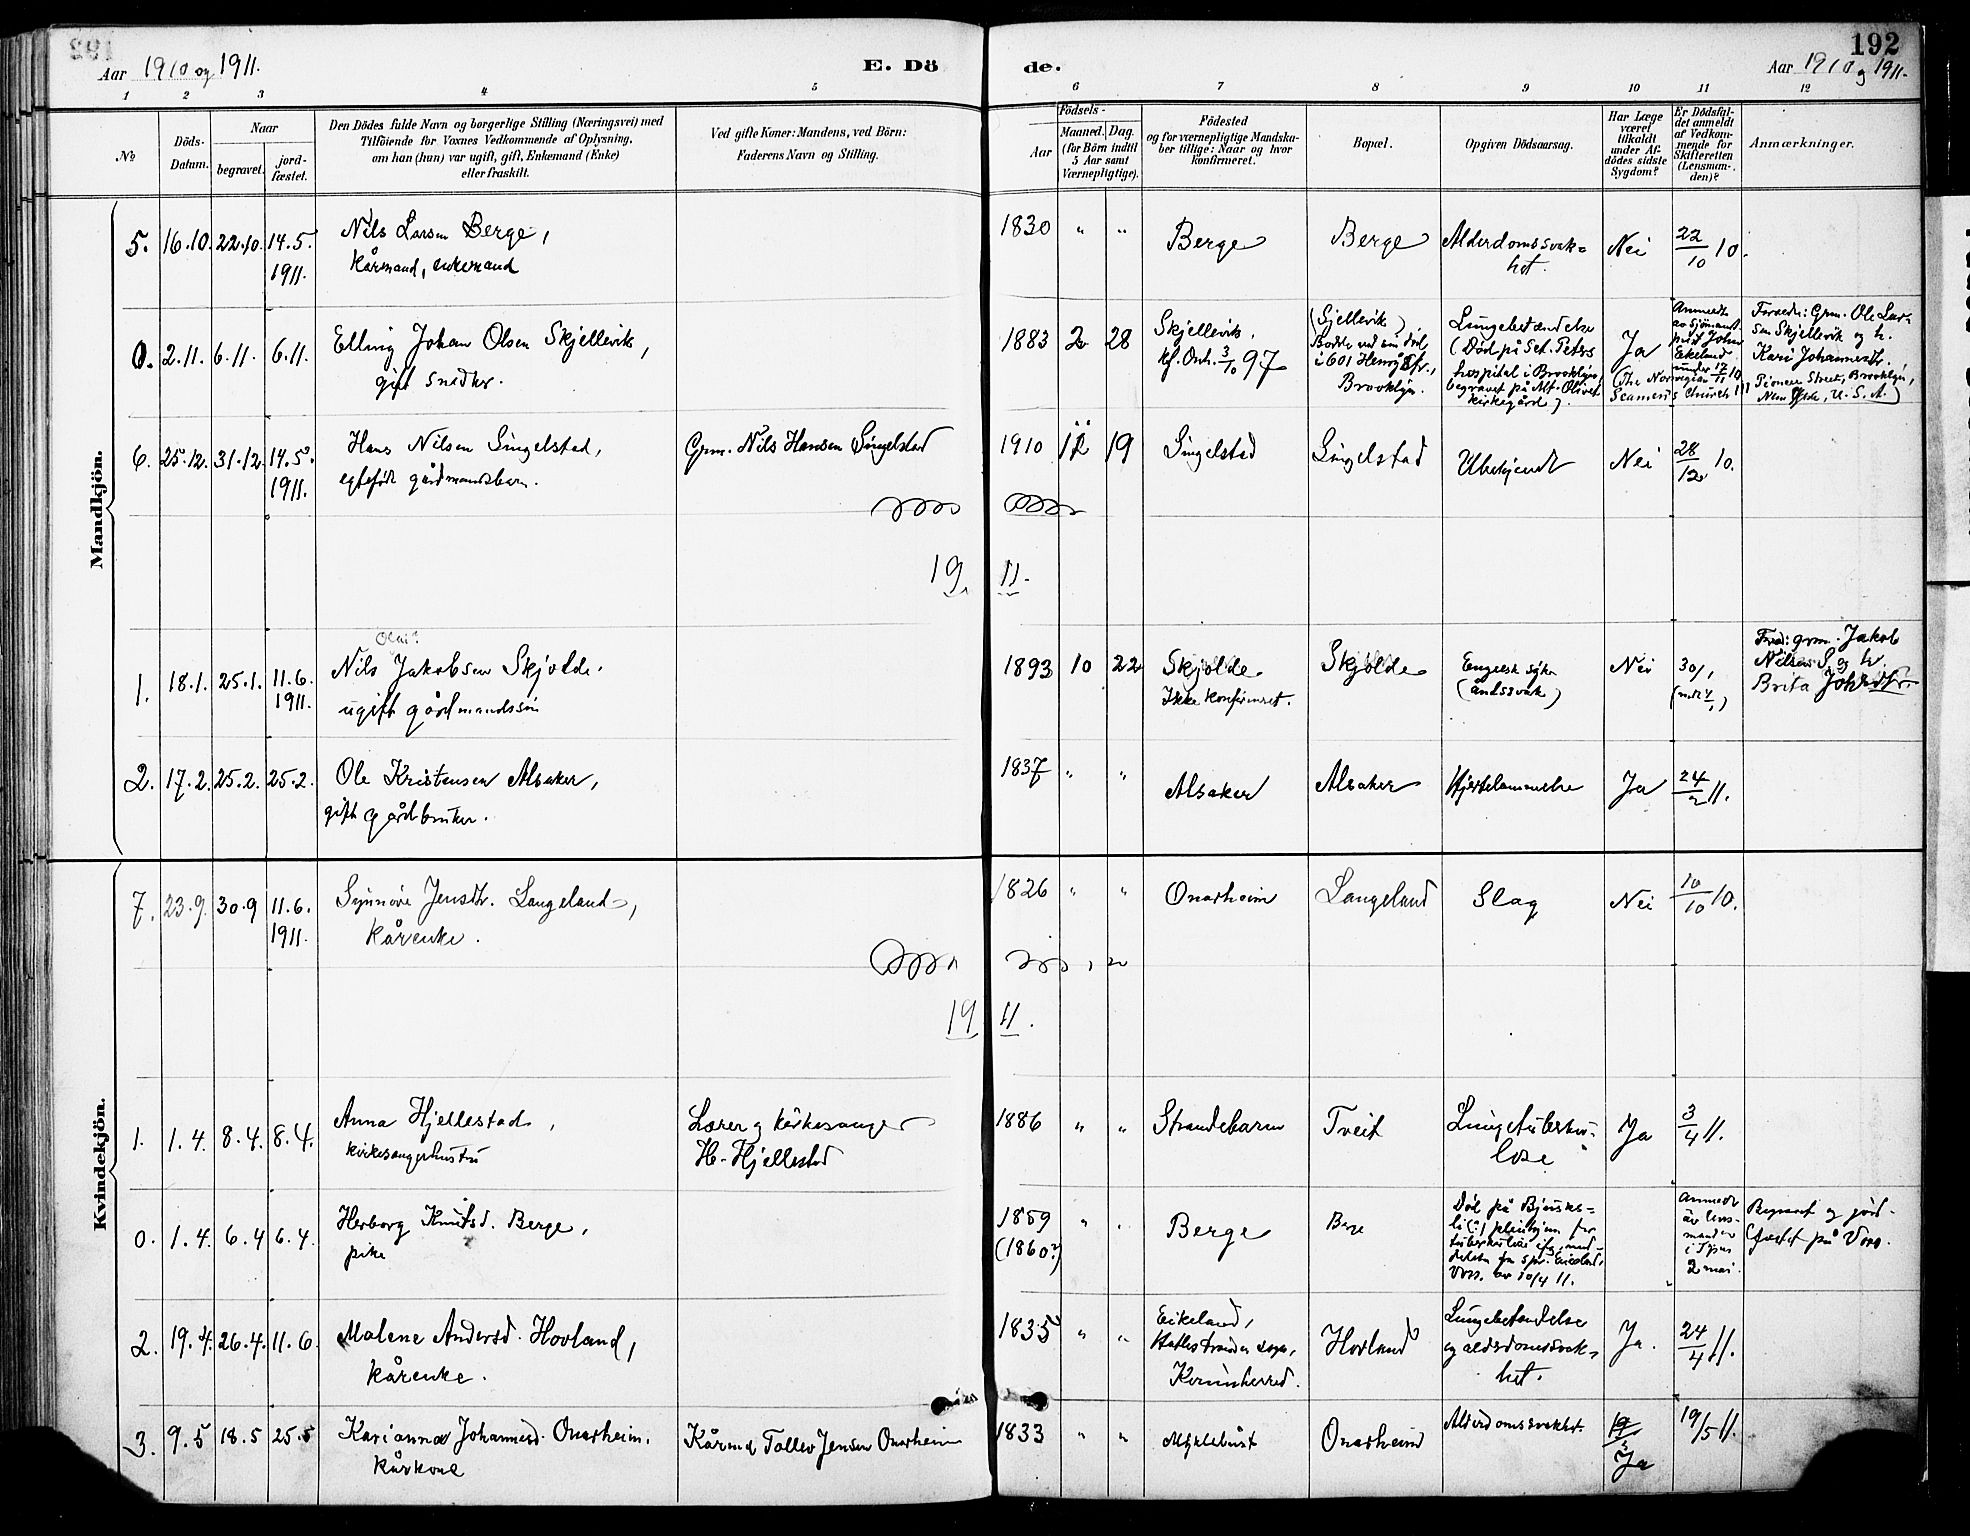 192
Aar 1910 og 1911.
E. Dö
de.
Aar 1910 og 1911.
1 2 3 4 5 6 7 8 9 10 11 12
No
Döds-Datum.
Naar
begravet.
jord-fæstet.
Den Dödes fulde Navn og borgerlige Stilling (Næringsvei) med
Tilföiende for Voxnes Vedkommende af Oplysning,
om han (hun) var ugift, gift, Enkemand (Enke)
eller fraskilt.
Ved gifte Koner: Mandens, ved Börn:
Faderens Navn og Stilling.
Födsels-
Aar
Maaned. Dag.
(for Börn indtil
5 Aar samt
Værnepligtige).
Födested
og for værnepligtige Mandska-
ber tillige: Naar og hvor
konfirmeret.
Bopæl.
Opgiven Dödsaarsag.
Har Læge
været
tilkaldt
under Af-
dödes sidste
Sygdom?
Er Dödsfal-
det anmeldt
af Vedkom-
mende for
Skifteretten
(Lensman-
den)?
Anmærkninger.
Mandkjön.
5. 16.10. 22.10. 14.5. 1911.
Nils Larsen Berge,
kårmand, enkemand
1830 " " Berge Berge Alderdomssvak=
het.
Nei 22/10 10.
0. 2.11. 6.11. 6.11.
Elling Johan Olsen Skjellevik,
gift snedker.
1883 2 28
Skjellevik.
kf. Onh. 3/10 97
(Sjellevik)
Bodde ved sin död
i 601 Henry Str.,
Brooklyn.
Lungebetændelse
(Död på Sct. Peters
hospital i Brooklyn,
begravet på Mt. Olivet
kirkegård).
Ja
(The Norwegian
Seamens Church 111
Anmeldt
av Sjömands-
prest John
Eikeland
under 17/11 10
Foreldre: Grm. Ole Lar-
sen Skjellevik og h.
Kari Johannesdtr.
Pioneer Street, Brooklyn,
New York, U.S.A.)
6. 25.12. 31.12. 14.5. 1911.
Hans Nilsen Lingelstad,
egtefödt gårdmandsbarn.
Grm. Nils Hansen Lingelstad
1910 12 19 Lingelstad Lingelstad Ubekjendt Nei 28/12 10.
19 11.
1. 18.1. 25.1. 11.6. 1911.
Olai?
Nils Jakobsen Skjolde.
ugift gårdmandssön
1893 10 22
Skjolde.
Ikke konfirmeret.
Skjolde
Engelsk syke
(åndssvak)
Nei 30/1
Foræld: grm. Jakob
Nilsen S. og h.
Brita Johsdtr.
2. 17.2. 25.2. 25.2.
Ole Kristensen Alsaker,
gift gårdbruker.
1837 " " Alsaker Alsaker Hjertelammelse Ja 24/2 11.
Kvindekjön.
7. 23.9. 30.9 11.6. 1911.
Synnöve Jensdtr. Langeland,
kårenke.
1826 " " Onarheim Langeland Slag Nei 10/10 10.
19 11.
1. 1.4. 8.4. 8.4.
Anna Hjellestad,
kirkesangerhustru
Lærer og kirkesanger
H. Hjellestad
1886 " " Strandebarm Tveit Lungetuberku-
lose
Ja 3/4 11.
0. 1.4. 6.4 6.4.
Herborg Knutsd. Berge,
pike
1859
(1860?)
Berge Berge
Död på
li(?) pleiehjem for
tuberkulöse ifg. med-
delelse fra spr. Eikeland,
Voss, av 10/4 11.
Anmeldt
av lens-
manden
i Tysnes
2 mai.
Begravet og jord-
fæstet på Voss.
2. 19.4. 26.4. 11.6
Malene Andersd. Hovland,
kårenke.
1835 " "
Eikeland,
Hatlestrandens sogn,
Kvinnherred.
Hovland
Lungebetændelse
og alderdomssvak-
het.
Ja. 24/4 11.
3. 9.5 18.5 25.5
Karianna Johannesd. Onarheim.
kårkone
Kårmd. Tollev Jensen Onarheim
1833 " " Myklebust Onarheim Alderdomssvakhet. Ja 19/5 11.